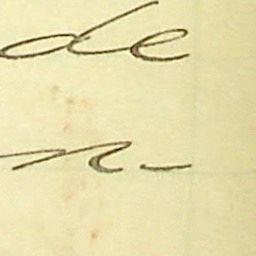 de
n-